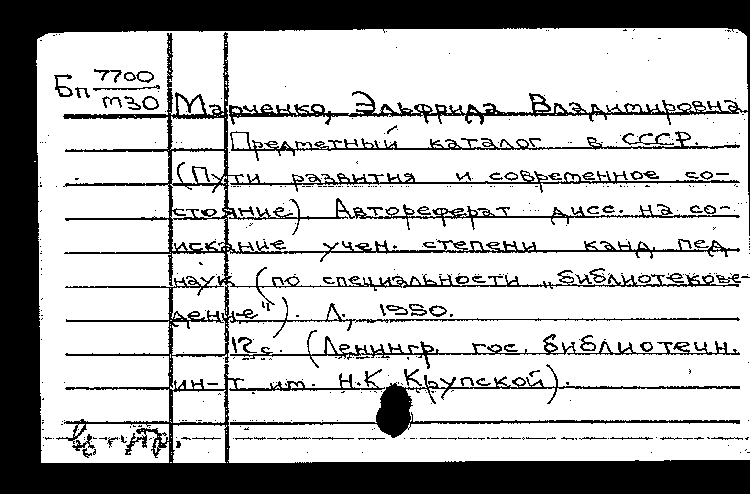 Бп 7700
т30
Марченко, Эльфрида Владимировна.
Предметный каталог в СССР.
(Пути развития и современное со-
стояние). Автореферат дисс. на со-
искание учен. степени канд. пед.
наук (по специальности „Библиотекове-
дение"). Л., 1950.
12 с. (Ленингр. гос. библиотечн.
ин-т им. Н.К. Крупской).